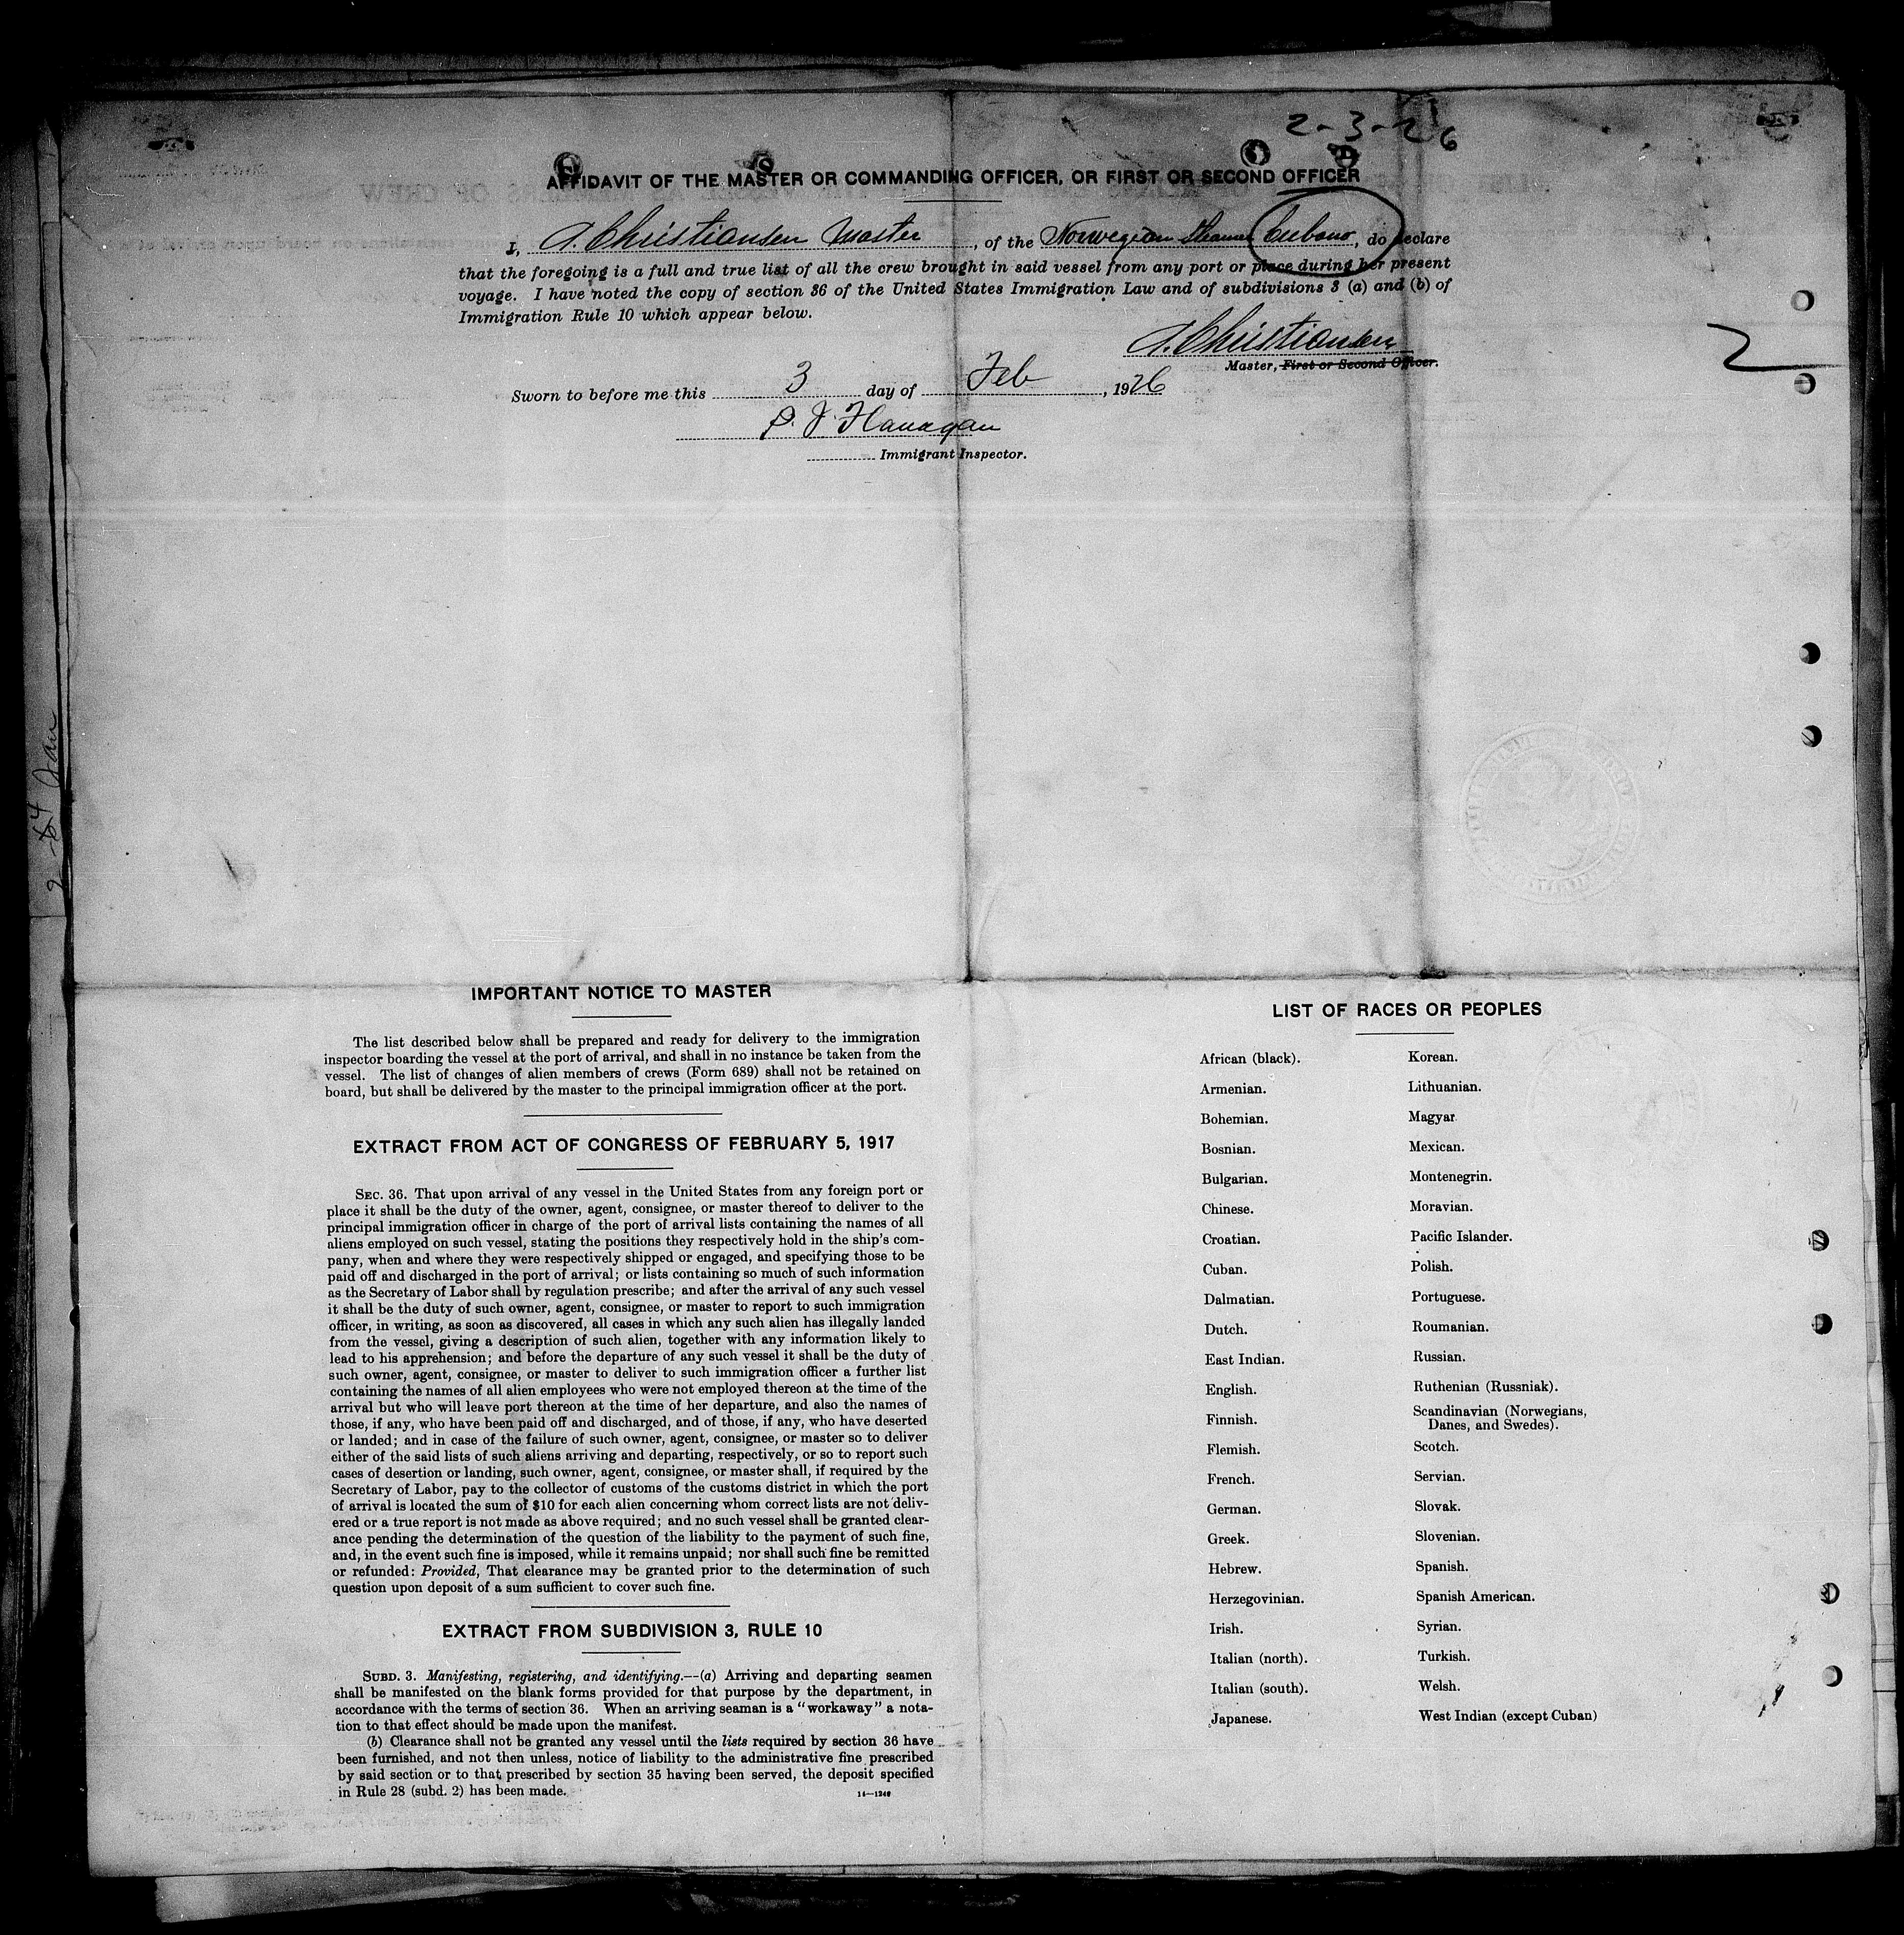 2-3-26
AFFIDAVIT OF THE MASTER OR COMMANDING OFFICER, OR FIRST OR SECOND OFFICER
I, A. Christiansen Master, of the Norwegian Steamer Cubano, do declare
that the foregoing is a full and true list of all the crew brought in said vessel from any port or place during her present
voyage. I have noted the copy of section 36 of the United States Immigration Law and of subdivisions 3 (a) and (b) of
Immigration Rule 10 which appear below.
A. Christiansen
Master, First or Second Officer.
2
Sworn to before me this 3 day of Feb, 1926
P. J. Flanagan
Immigrant Inspector.
IMPORTANT NOTICE TO MASTER
The list described below shall be prepared and ready for delivery to the immigration
inspector boarding the vessel at the port of arrival, and shall in no instance be taken from the
vessel. The list of changes of alien members of crews (Form 689) shall not be retained on
board, but shall be delivered by the master to the principal immigration officer at the port.
EXTRACT FROM ACT OF CONGRESS OF FEBRUARY 5, 1917
SEC. 36. That upon arrival of any vessel in the United States from any foreign port or
place it shall be the duty of the owner, agent, consignee, or master thereof to deliver to the
principal immigration officer in charge of the port of arrival lists containing the names of all
aliens employed on such vessel, stating the positions they respectively hold in the ship's com-
pany, when and where they were respectively shipped or engaged, and specifying those to be
paid off and discharged in the port of arrival; or lists containing so much of such information
as the Secretary of Labor shall by regulation prescribe; and after the arrival of any such vessel
it shall be the duty of such owner, agent, consignee, or master to report to such immigration
officer, in writing, as soon as discovered, all cases in which any such alien has illegally landed
from the vessel, giving a description of such alien, together with any information likely to
lead to his apprehension; and before the departure of any such vessel it shall be the duty of
such owner, agent, consignee, or master to deliver to such immigration officer a further list
containing the names of all alien employees who were not employed thereon at the time of the
arrival but who will leave port thereon at the time of her departure, and also the names of
those, if any, who have been paid off and discharged, and of those, if any, who have deserted
or landed; and in case of the failure of such owner, agent, consignee, or master so to deliver
either of the said lists of such aliens arriving and departing, respectively, or so to report such
cases of desertion or landing, such owner, agent, consignee, or master shall, if required by the
Secretary of Labor, pay to the collector of customs of the customs district in which the port
of arrival is located the sum of $10 for each alien concerning whom correct lists are not deliv-
ered or a true report is not made as above required; and no such vessel shall be granted clear-
ance pending the determination of the question of the liability to the payment of such fine,
and, in the event such fine is imposed, while it remains unpaid; nor shall such fine be remitted
or refunded: Provided, That clearance may be granted prior to the determination of such
question upon deposit of a sum sufficient to cover such fine.
EXTRACT FROM SUBDIVISION 3, RULE 10
SUBD. 3. Manifesting, registering, and identifying.--(a) Arriving and departing seamen
shall be manifested on the blank forms provided for that purpose by the department, in
accordance with the terms of section 36. When an arriving seaman is a "workaway" a nota-
tion to that effect should be made upon the manifest.
(b) Clearance shall not be granted any vessel until the lists required by section 36 have
been furnished, and not then unless, notice of liability to the administrative fine prescribed
by said section or to that prescribed by section 35 having been served, the deposit specified
in Rule 28 (subd. 2) has been made.
14—1240
LIST OF RACES OR PEOPLES
African (black).
Armenian.
Bohemian.
Bosnian.
Bulgarian.
Chinese.
Croatian.
Cuban.
Dalmatian.
Dutch.
East Indian.
English.
Finnish.
Flemish.
French.
German.
Greek.
Hebrew.
Herzegovinian.
Irish.
Italian (north).
Italian (south).
Japanese.
Korean.
Lithuanian.
Magyar
Mexican.
Montenegrin.
Moravian.
Pacific Islander.
Polish.
Portuguese.
Roumanian.
Russian.
Ruthenian (Russniak).
Scandinavian (Norwegians,
Danes, and Swedes).
Scotch.
Servian.
Slovak.
Slovenian.
Spanish.
Spanish American.
Syrian.
Turkish.
Welsh.
West Indian (except Cuban)